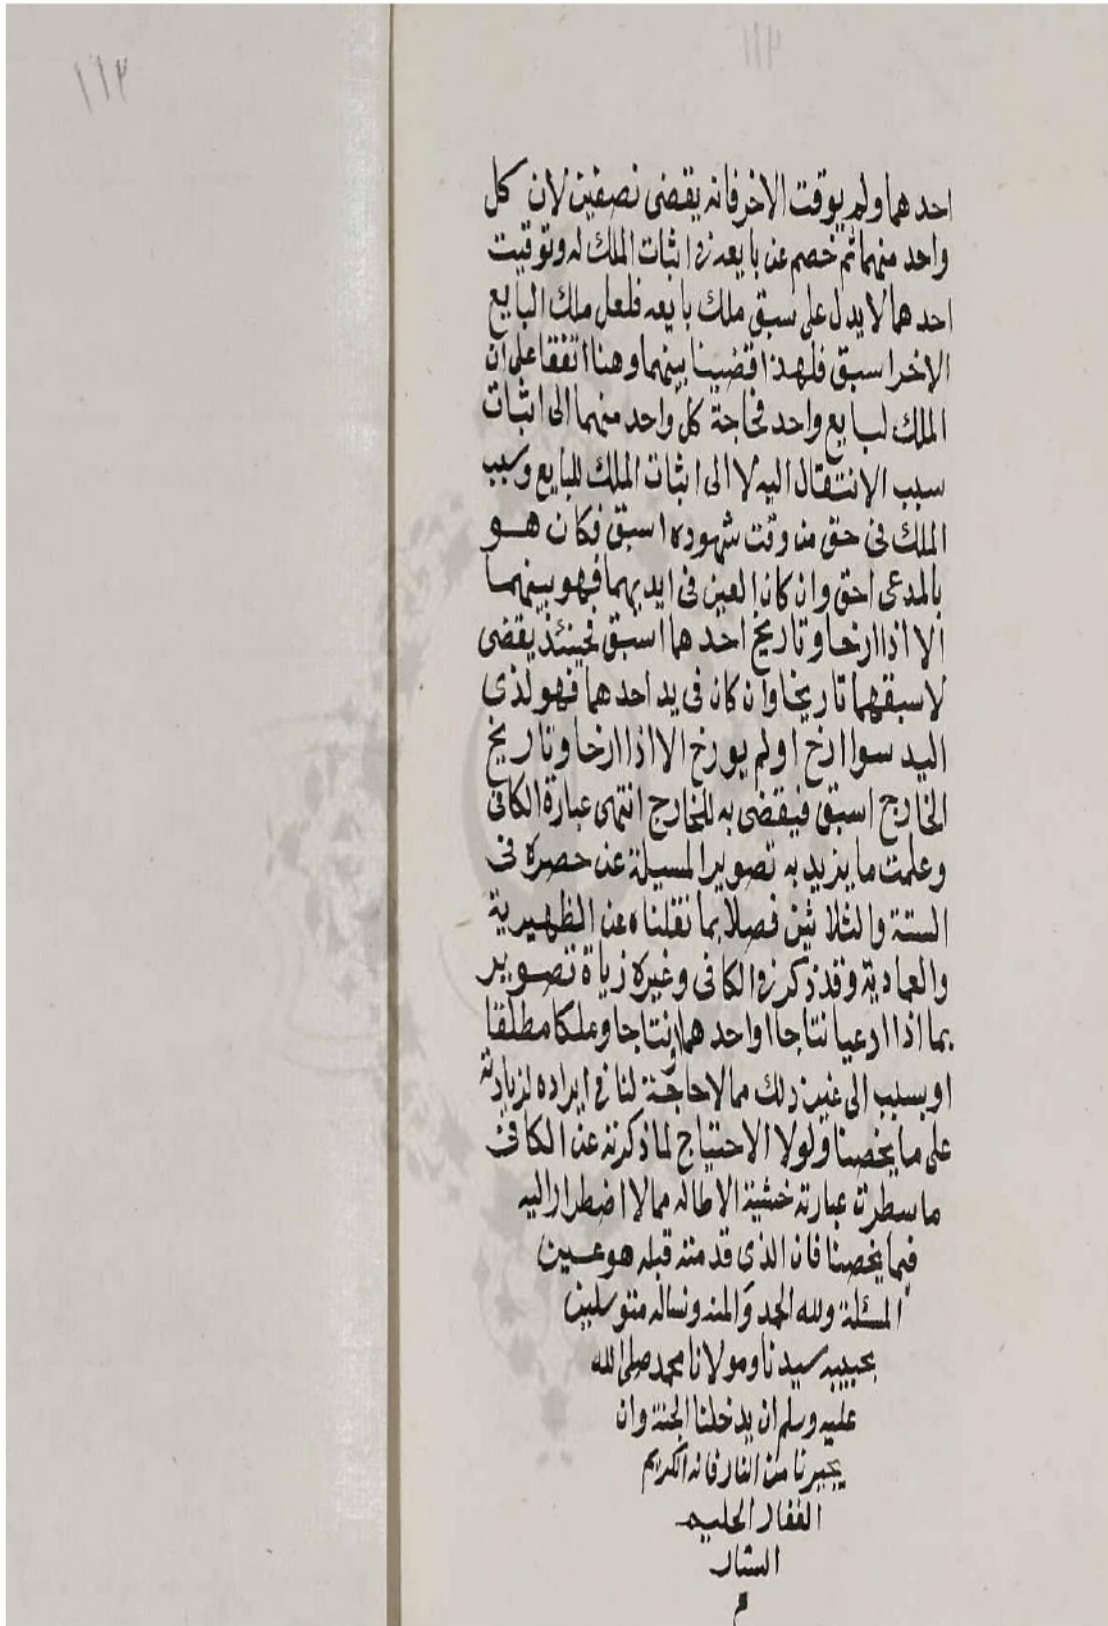 ١١٢
١١٢
احدهما ولم يوقت الاخر فانه يقضى نصفين لان كل
واحد منهما ثم خصم عن بايعه في اثبات الملك له وتوقيت
احدهما لا يدل على سبق ملك بايعه فلعل ملك البايع
الاخر اسبق فلهذا قضينا بينهما وهنا اتفقا على ان
الملك لبايع واحد فحاجة كل واحد منهما الى اثبات
سبب الانتقال اليه لا الى اثبات الملك للبايع وسبب
الملك في حق من وقت شهوده اسبق فكان هو
بالمدعى احق وان كان العين في ايديهما فهو بينهما
الا اذا ارخا وتاريخ احدهما اسبق فحينئذ يقضى
لاسبقهما تاريخا وان كان في يد احدهما فهو لذى
اليد سوا ارخ او لم يورخ الا اذا ارخا وتاريخ
الخارج اسبق فيقضى به للخارج انتهى عبارة الكافي
وعلمت ما يزيد به تصوير المسيلة عن حصره في
الستة والثلاثين فصلا بما نقلناه عن الظهيرية
والعمادية وقد ذكر في الكافي وغيره زياة تصوير
بما اذا ادعيا نتاجا او احدهما نتاجا وملكا مطلقا
او بسبب الى غير ذلك مما لا حاجة لنا في ايراده لزيادته
على ما يخصنا ولولا الاحتياج لما ذكرته عن الكافي
ما سطرت عبارته خشية الاطاله مما لا اضطرار اليه
فيما يخصنا فان الذي قدمته قبله هو عين
المسئلة ولله الحمد والمنه ونساله متوسلين
بحبيبه سيدنا ومولانا محمد صلى الله
عليه وسلم ان يدخلنا الجنة وان
يجيرنا من النار فانه الكريم
الغفار الحليم
الستار
م